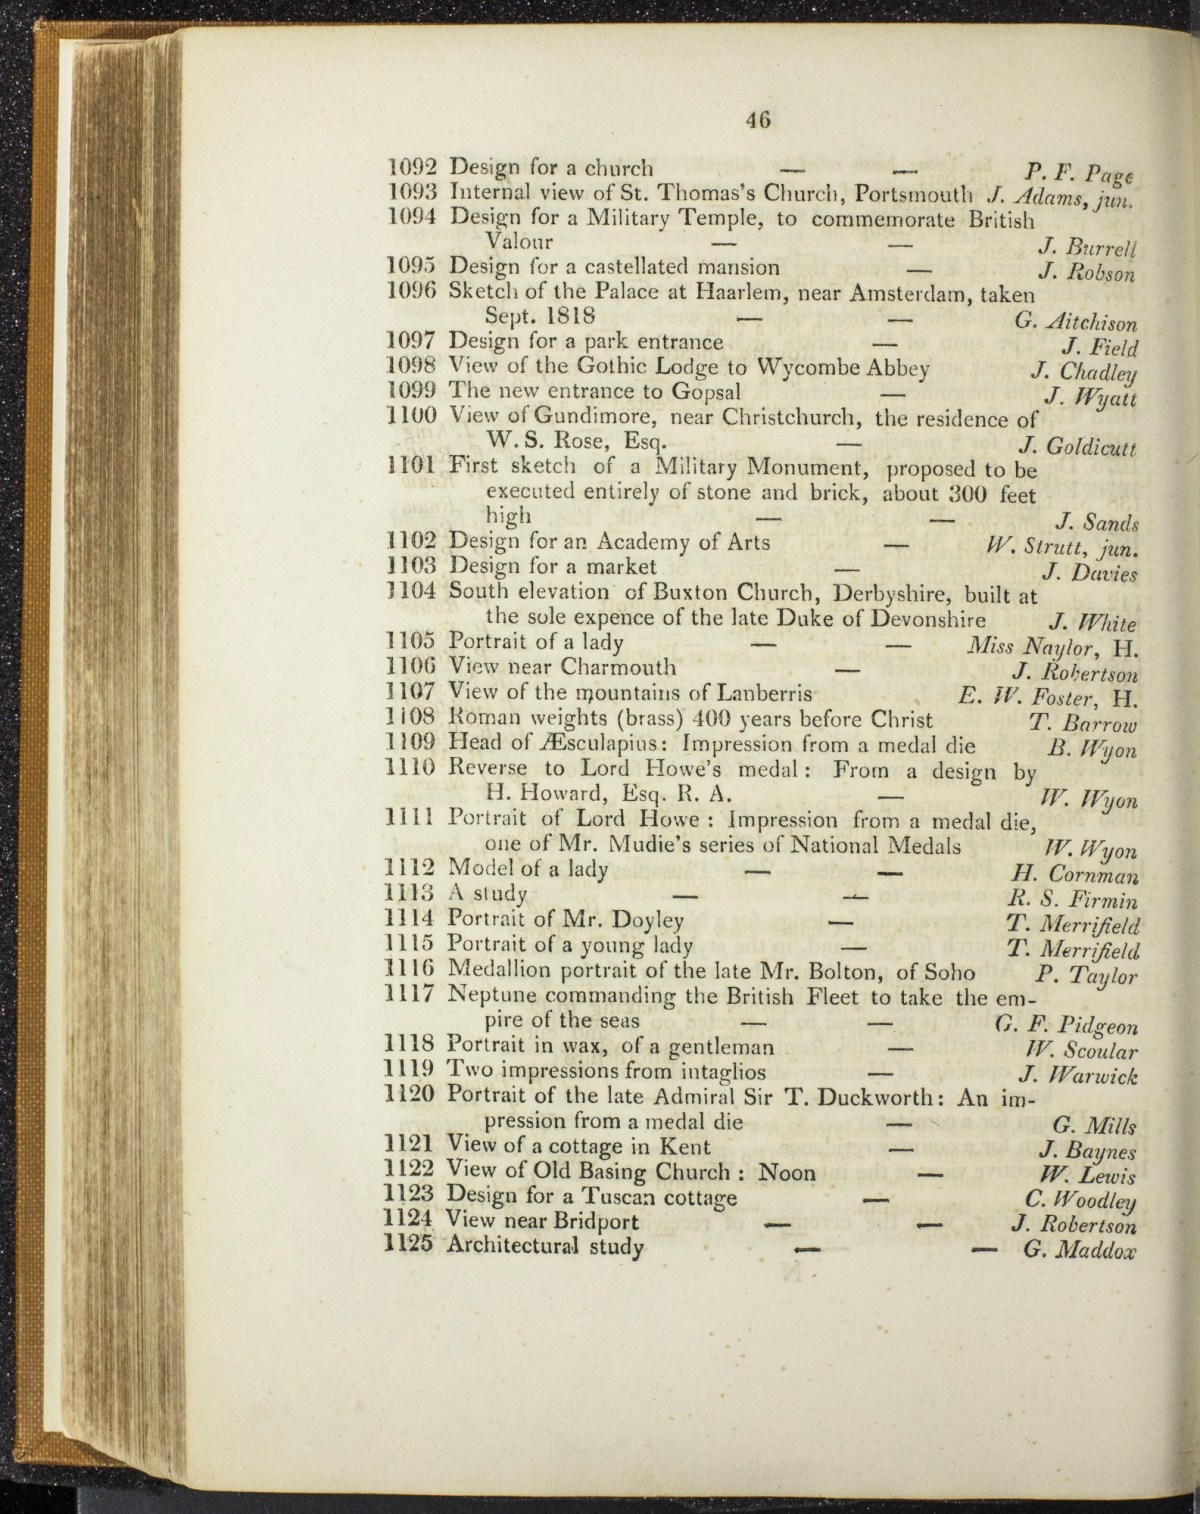 46
1092 Design for a church — — P. F. Page
1093 Internal view of St. Thomas's Church, Portsmouth J. Adams, jun.
1094 Design for a Military Temple, to commemorate British
Valour — — J. Burrell
1095 Design for a castellated mansion — J. Robson
1096 Sketch of the Palace at Haarlem, near Amsterdam, taken
Sept. 1818 — — G. Aitchison
1097 Design for a park entrance — J. Field
1098 View of the Gothic Lodge to Wycombe Abbey J. Chadley
1099 The new entrance to Gopsal — J. Wyatt
1100 View of Gundimore, near Christchurch, the residence of
W. S. Rose, Esq. — J. Goldicutt
1101 First sketch of a Military Monument, proposed to be
executed entirely of stone and brick, about 300 feet
high — — J. Sands
1102 Design for an Academy of Arts — W. Strutt, jun.
1103 Design for a market — J. Davies
1104 South elevation of Buxton Church, Derbyshire, built at
the sole expence of the late Duke of Devonshire J. White
1105 Portrait of a lady — — Miss Naylor, H.
1106 View near Charmouth — J. Robertson
1107 View of the mountains of Lanberris E. W. Foster, H.
1108 Roman weights (brass) 400 years before Christ T. Barrow
1109 Head of Æsculapius: Impression from a medal die B. Wyon
1110 Reverse to Lord Howe's medal: From a design by
H. Howard, Esq. R. A. — W. Wyon
1111 Portrait of Lord Howe: Impression from a medal die,
one of Mr. Mudie's series of National Medals W. Wyon
1112 Model of a lady — — H. Cornman
1113 A study — — R. S. Firmin
1114 Portrait of Mr. Doyley — T. Merrifield
1115 Portrait of a young lady — T. Merrifield
1116 Medallion portrait of the late Mr. Bolton, of Soho P. Taylor
1117 Neptune commanding the British Fleet to take the em-
pire of the seas — — G. F. Pidgeon
1118 Portrait in wax, of a gentleman — W. Scoular
1119 Two impressions from intaglios — J. Warwick
1120 Portrait of the late Admiral Sir T. Duckworth: An im-
pression from a medal die — G. Mills
1121 View of a cottage in Kent — J. Baynes
1122 View of Old Basing Church: Noon — W. Lewis
1123 Design for a Tuscan cottage — C. Woodley
1124 View near Bridport — — J. Robertson
1125 Architectural study — — G. Maddox